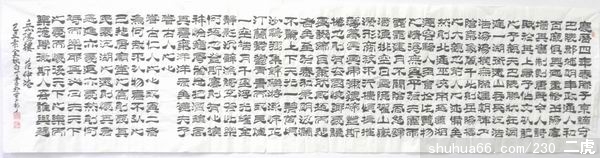 慶曆四年春滕子京謫守
巴陵郡越明年政通人和
百廢俱興乃重修岳陽樓
增其舊制刻唐賢今人詩
賦於其上屬予作文以記
之予觀夫巴陵勝狀在洞
庭一湖銜遠山吞長江浩
浩湯湯橫無際涯朝暉夕
陰氣象萬千此則岳陽樓
之大觀也前人之述備矣
然則北通巫峽南極瀟湘
遷客騷人多會於此覽物
之情得無異乎若夫霪雨
霏霏連月不開陰風怒號
濁浪排空日星隱曜山岳
潛形商旅不行檣傾楫摧
薄暮冥冥虎嘯猿啼登斯
樓也則有去國懷鄉憂讒
畏譏滿目蕭然感極而悲
者矣至若春和景明波瀾
不驚上下天光一碧萬頃
沙鷗翔集錦鱗游泳岸芷
汀蘭郁郁青青而或長煙
一空皓月千里浮光躍金
靜影沉璧漁歌互答此樂
何極登斯樓也則有心曠
神怡寵辱皆忘把酒臨風
其喜洋洋者矣嗟夫予嘗
求古仁人之心或異二者
之為何哉不以物喜不以
己悲居廟堂之高則憂其
民處江湖之遠則憂其君
是進亦憂退亦憂然則何
時而樂耶其必曰先天下之
憂而憂後天下之樂而
樂歟噫微斯人吾誰與歸
岳陽樓記 范仲淹
shuhua66.com/230 二虎